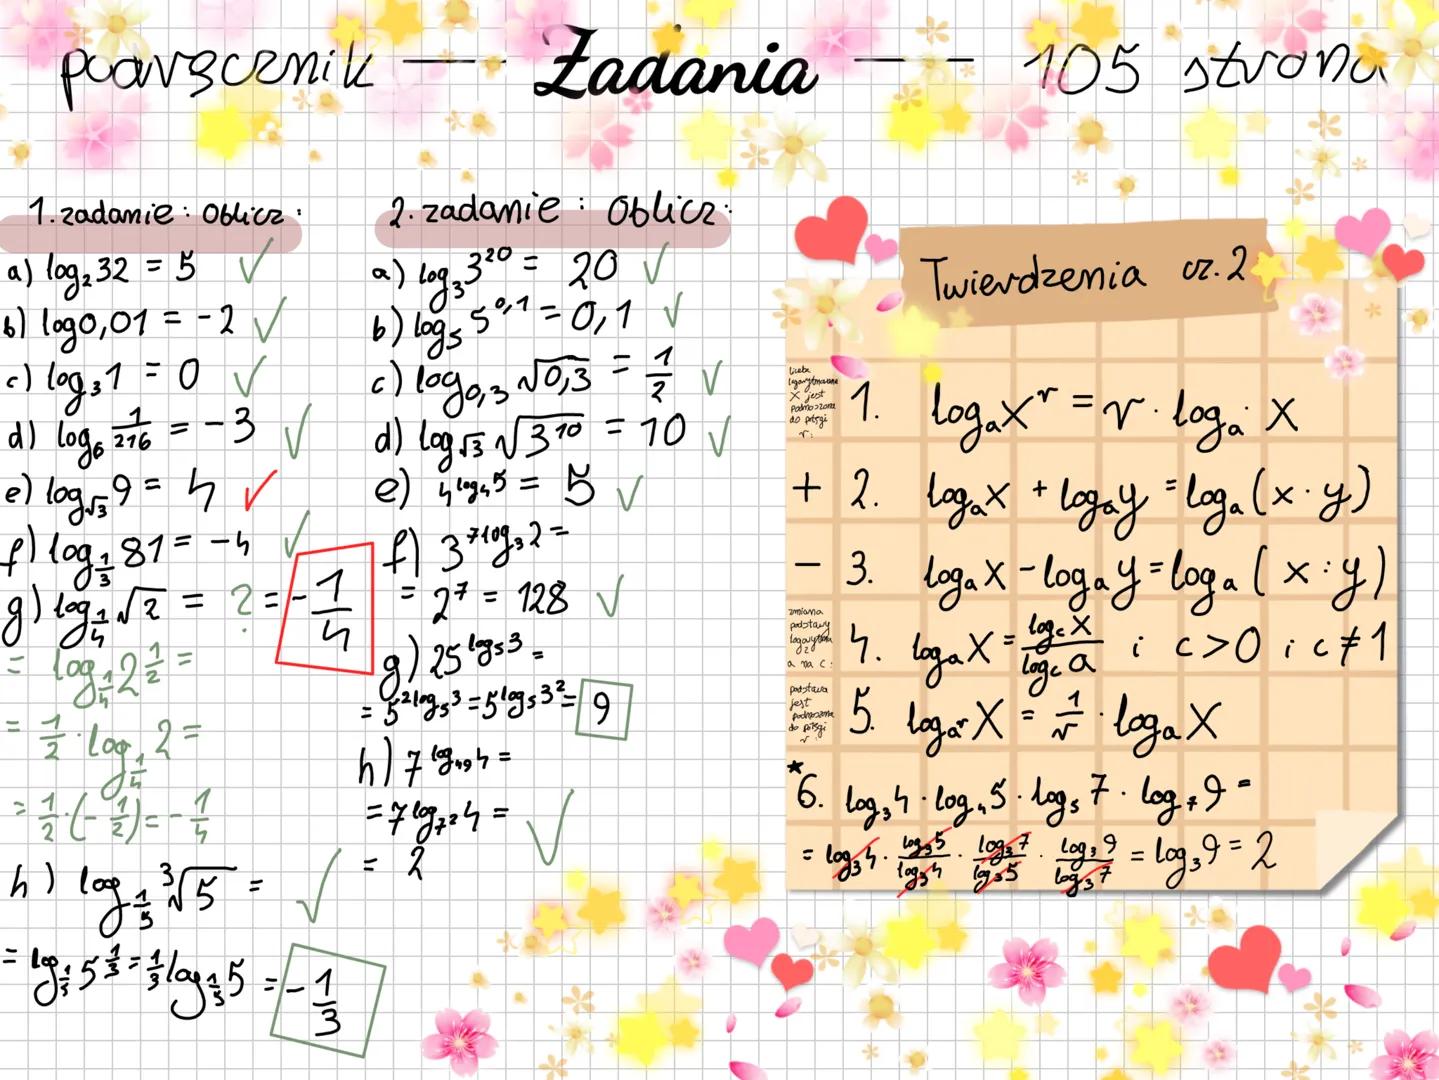 podręcznik — Zadania — 105 strona
1. zadanie : Oblicz :
a) log₂32 = 5 ✓
b) log0,01 = -2 ✓
c) log₃1 = 0 ✓
d) log₆ 1/216 = -3 ✓
e) log_√3 9 = 4 ✓
f) log_1/3 81 = -4 ✓
g) log_1/4 √2 = ? = -1/4
= log_1/4 2^1/2 =
= 1/2 · log_1/4 2 =
= 1/2 · (-1/2) = -1/4
h) log_1/5 ³√5 = ✓
= log_1/5 5^1/3 = 1/3 log_1/5 5 = -1/3
2. zadanie : Oblicz :
a) log₃3²⁰ = 20 ✓
b) log₅5^0,1 = 0,1 ✓
c) log_0,3 √0,3 = 1/2 ✓
d) log_√3 √3¹⁰ = 10 ✓
e) 4^log₄5 = 5 ✓
f) 3^7log₃2 =
= 2⁷ = 128 ✓
g) 25^log₅3 =
= 5^2log₅3 = 5^log₅3² = 9
h) 7^log₄₉4 =
= 7^log_7² 4 = ✓
= 2
Twierdzenia cz. 2
liczba
logarytmowana
X jest
podnoszona
do potęgi
r:
1. logₐxʳ = r · logₐ x
+ 2. logₐx + logₐy = logₐ(x · y)
- 3. logₐx - logₐy = logₐ(x : y)
zmiana
podstawy
logarytmu
z
a na c:
4. logₐx = log_c x / log_c a i c > 0 i c ≠ 1
podstawa
jest
podnoszona
do potęgi
r:
5. log_aʳ x = 1/r · logₐx
★
6. log₃4 · log₄5 · log₅7 · log₇9 =
= log₃4 · log₃5/log₃4 · log₃7/log₃5 · log₃9/log₃7 = log₃9 = 2